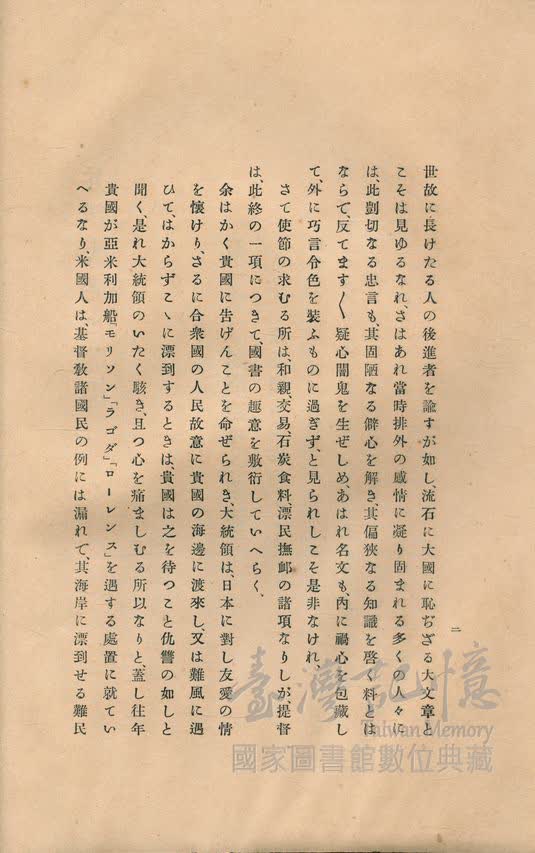 二
世故に長けたる人の後進者を諭すが如し、流石に大國に恥ぢざる大文章と
こそは見ゆるなれ、さはあれ當時排外の感情に凝り固まれる多くの人々に
は、此剴切なる忠言も、其固陋なる僻心を解き、其偏狹なる知識を啓く料とは
ならで、反てます〳〵疑心闇鬼を生ぜしめ、あはれ名文も、內に禍心を包藏し
て、外に巧言令色を裝ふものに過ぎず、と見られしこそ是非なけれ、
さて使節の求むる所は、和親、交易、石炭食料漂民撫䘏の諸項なりしが提督
は、此終の一項につきて、國書の趣意を敷衍していへらく、
余はかく貴國に吿げんことを命ぜられき、大統領は、日本に對し友愛の情
を懷けり、さるに合衆國の人民故意に貴國の海邊に渡來し、又は難風に遇
ひて、はからずこゝに漂到するときは、貴國は之を待つこと仇讐の如しと
聞く、是れ大統領のいたく駭き、且つ心を痛ましむる所以なりと、蓋し往年
貴國が亞米利加船『モリソン』『ラゴダ』『ローレンス』を遇する處置に就てい
へるなり、米國人は、基督敎諸國民の例には漏れて、其海岸に漂到せる難民
臺灣記憶
Taiwan Memory
國家圖書館數位典藏